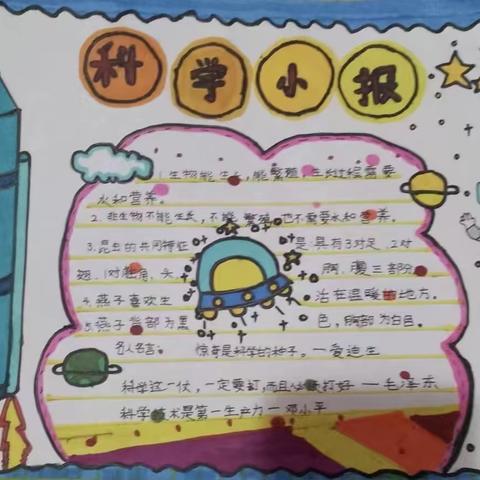 科学小报
1.生物能生长,能繁殖,生长过程需要
水和营养。
2.非生物不能生长,不能繁殖,也不需要水和营养。
3.昆虫的共同特征是:具有3对足、2对
翅、1对触角,头、胸、腹三部分。
4.燕子喜欢生活在温暖的地方。
5.燕子背部为黑色,胸部为白色。
名人名言: 惊奇是科学的种子。—爱迪生
科学这一仗,一定要打,而且必须打好 —毛泽东
科学技术是第一生产力—邓小平